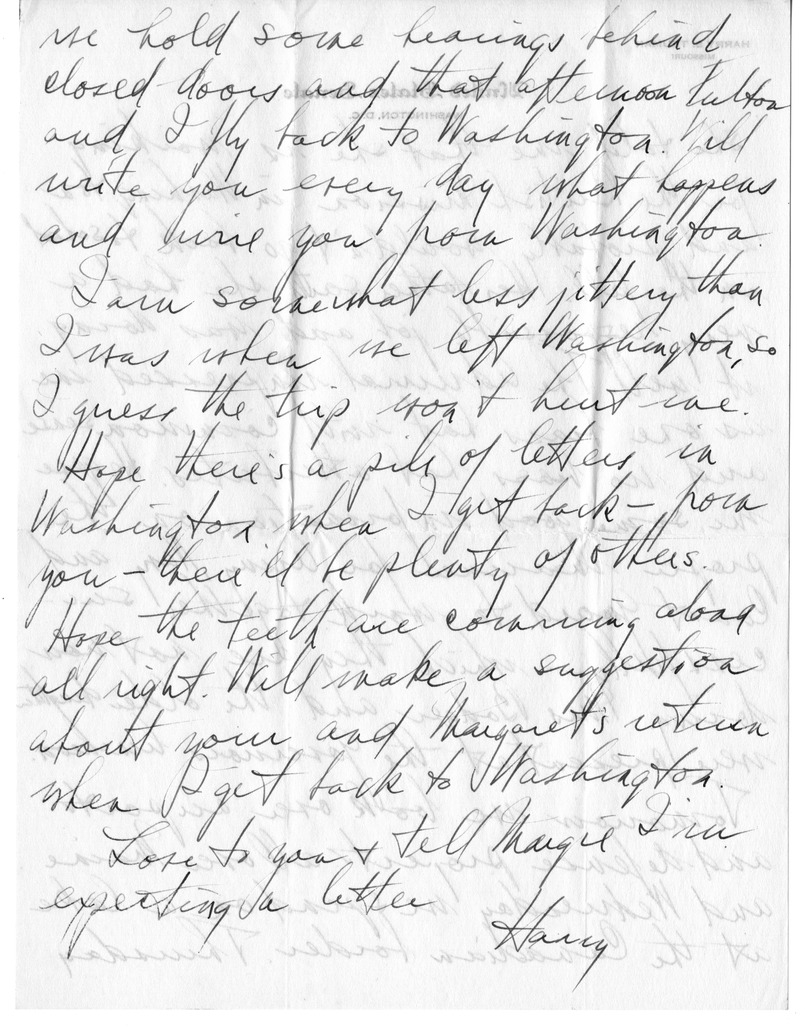 we hold some hearings behind
closed doors and that afternoon Fulton
and I fly back to Washington. Will
write you every day what happens
and wire you from Washington.
I am somewhat less jittery than
I was when we left Washington, so
I guess the trip won't hurt me.
Hope there's a pile of letters in
Washington when I get back - from
you - there'll be plenty of others.
Hope the teeth are comming along
all right. Will make a suggestion
about your and Margaret's return
when I get back to Washington.
Love to you & tell Margie I'm
expecting a letter
Harry